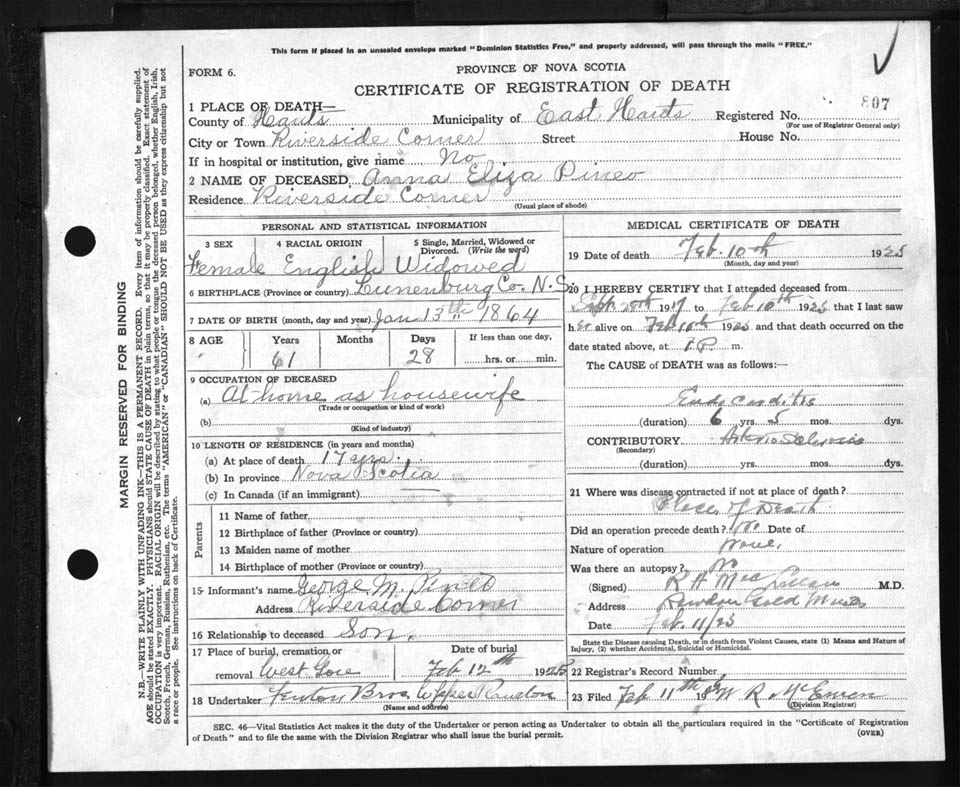 This form if placed in an unsealed envelope marked "Dominion Statistics Free," and properly addressed, will pass through the mails "FREE."
FORM 6.
PROVINCE OF NOVA SCOTIA
CERTIFICATE OF REGISTRATION OF DEATH
1 PLACE OF DEATH—
County of Hants Municipality of East Hants Registered No. 807
(For use of Registrar General only)
City or Town Riverside Corner Street House No.
If in hospital or institution, give name No
2 NAME OF DECEASED, Anna Eliza Pineo
Residence Riverside Corner
(Usual place of abode)
PERSONAL AND STATISTICAL INFORMATION
3 SEX 4 RACIAL ORIGIN 5 Single, Married, Widowed or Divorced. (Write the word)
Female English Widowed
6 BIRTHPLACE (Province or country) Lunenburg Co. N.S.
7 DATE OF BIRTH (month, day and year) Jan 13th 1864
8 AGE Years Months Days If less than one day,
61 28 hrs. or min.
9 OCCUPATION OF DECEASED
(a) At home as housewife
(Trade or occupation or kind of work)
(b)
(Kind of industry)
10 LENGTH OF RESIDENCE (in years and months)
(a) At place of death 17 yrs.
(b) In province Nova Scotia
(c) In Canada (if an immigrant)
Parents
11 Name of father
12 Birthplace of father (Province or country)
13 Maiden name of mother
14 Birthplace of mother (Province or country)
15 Informant's name George M. Pineo
Address Riverside Corner
16 Relationship to deceased Son.
17 Place of burial, cremation, or removal Date of burial
West Gore Feb 12th 1925
18 Undertaker Fenton Bros, Upper
(Name and address)
MEDICAL CERTIFICATE OF DEATH
19 Date of death Feb. 10th 1925
(Month, day and year)
20 I HEREBY CERTIFY that I attended deceased from
Sept. 20th 1917 to Feb 10th 1925 that I last saw
her alive on Feb 10th 1925 and that death occurred on the
date stated above, at P. m.
The CAUSE OF DEATH was as follows:—
Endocarditis
(duration) 6 yrs. 5 mos. dys.
CONTRIBUTORY Arterio Sclerosis
(Secondary)
(duration) yrs. mos. dys.
21 Where was disease contracted if not at place of death?
Place of Death
Did an operation precede death? No Date of
Nature of operation None.
Was there an autopsy? No
(Signed) R H Mac M.D.
Address Rawdon Gold Mines
Date Feb. 11/25
State the Disease causing Death, or in death from Violent Causes, state (1) Means and Nature of Injury, (2) whether Accidental, Suicidal or Homicidal.
22 Registrar's Record Number
23 Filed Feb 11th 19 W R McEwen
(Division Registrar)
SEC. 46—Vital Statistics Act makes it the duty of the Undertaker or person acting as Undertaker to obtain all the particulars required in the "Certificate of Registration
of Death" and to file the same with the Division Registrar who shall issue the burial permit. (OVER)
MARGIN RESERVED FOR BINDING
N.B.—WRITE PLAINLY WITH UNFADING INK—THIS IS A PERMANENT RECORD. Every item of information should be carefully supplied.
AGE should be stated EXACTLY. PHYSICIANS should STATE CAUSE OF DEATH in plain terms, so that it may be properly classified. Exact statement of
OCCUPATION is very important. RACIAL ORIGIN will be described by stating to what people or tongue the deceased person belonged, whether English, Irish,
Scotch, French, German, Russian, Ruthenian, etc. The terms "AMERICAN" or "CANADIAN" SHOULD NOT BE USED as they express citizenship but not
a race or people. See instructions on back of Certificate.